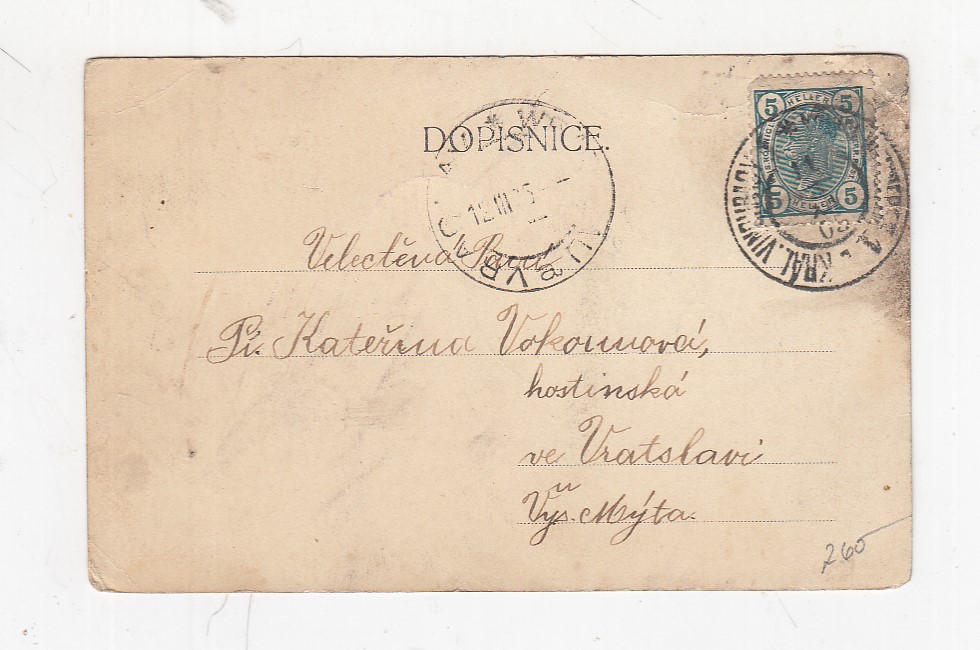 DOPISNICE.
5 HELLER 5
5 HELLER 5
KRÁL. VINOHRADY
12 III 05
Velectěná Paní
Pí. Kateřina Vokounová,
hostinská
ve Vratslavi
u
Vys. Mýta.
760